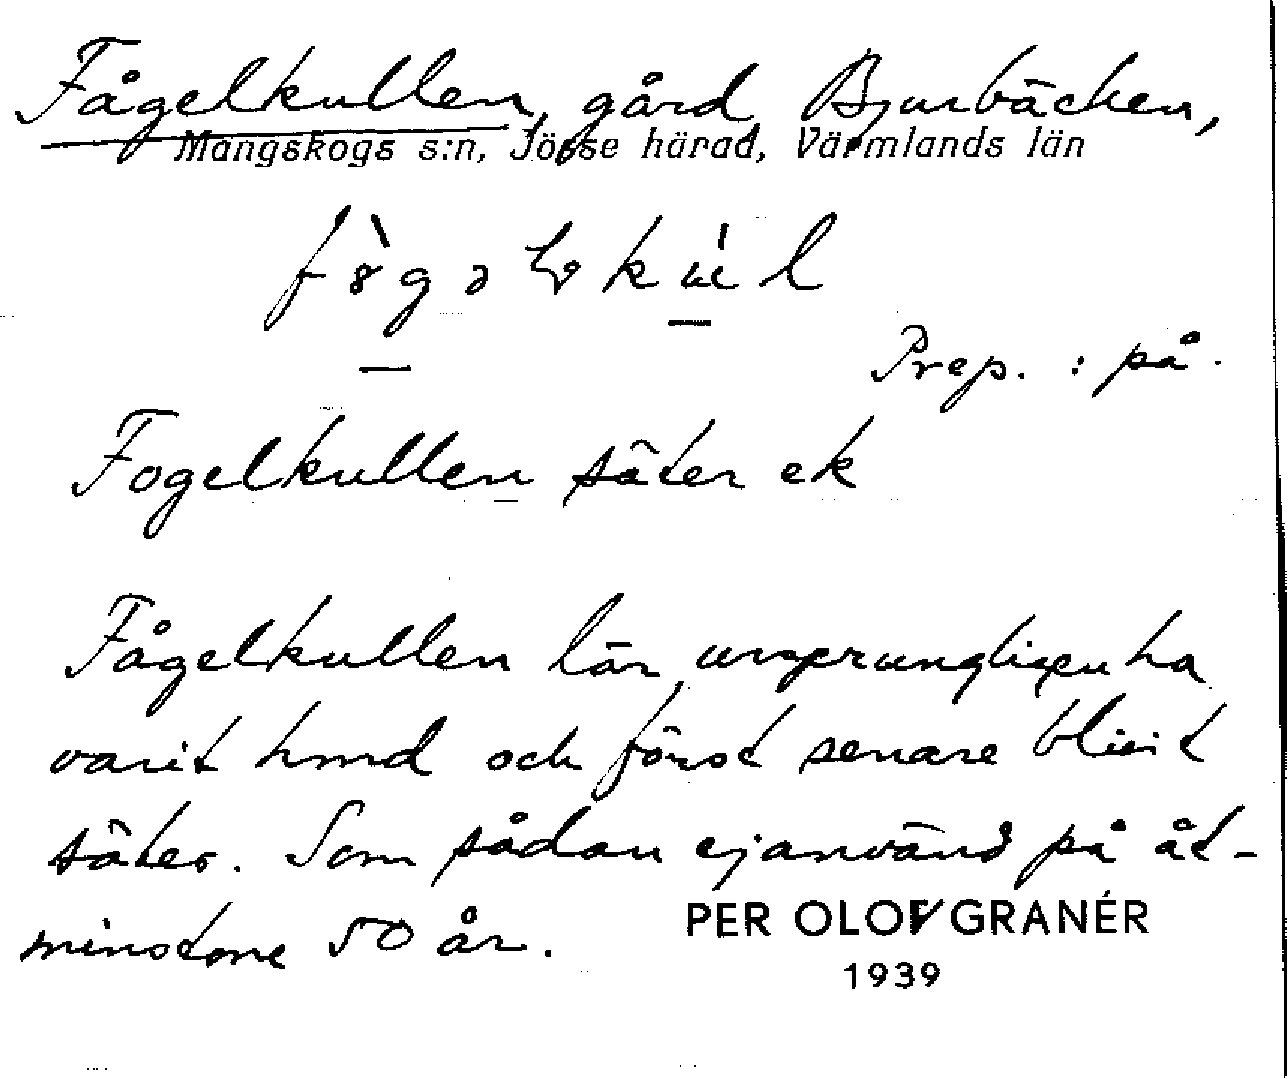 Fågelkullen, gård, Bjurbäcken,
Mangskogs s:n, Jösse härad, Värmlands län
Prep. : på.
Fogelkullen säter ek
Fågelkullen lär ursprungligen ha
varit hmd och först senare blivit
säter. Som sådan ej använd på åt-
minstone 50 år.
PER OLOF GRANÉR
1939